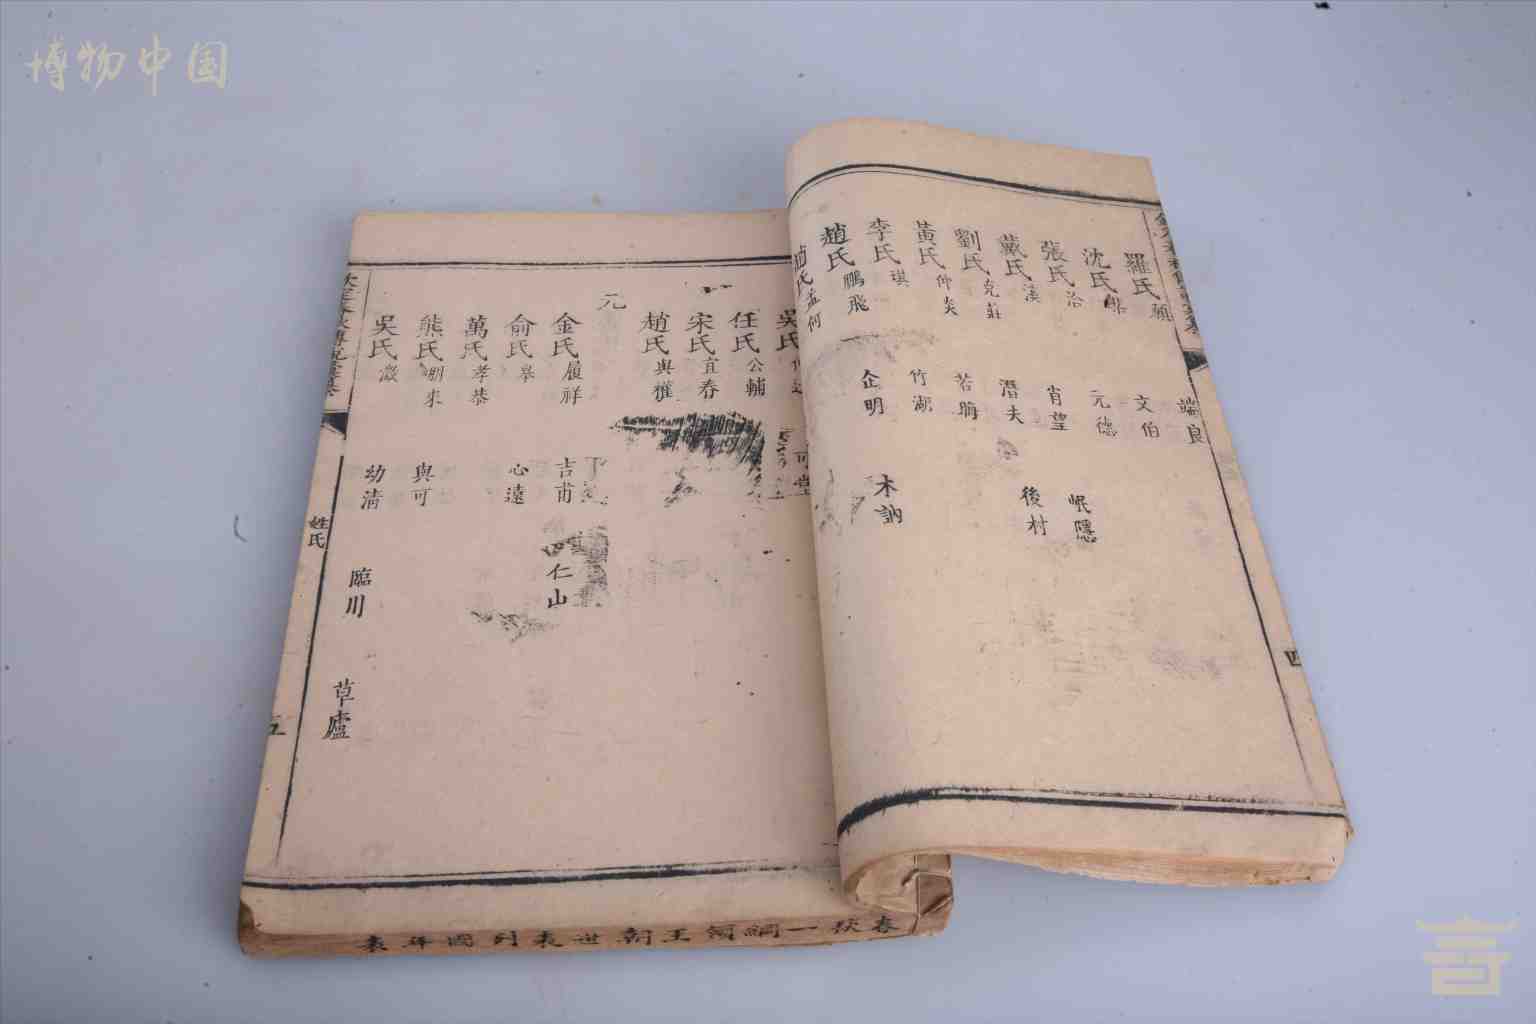 博物中国
羅氏 願 端良
沈氏 棐 文伯
張氏 洽 元德
戴氏 溪 肖望 岷隱
劉氏 克莊 潛夫 後村
黃氏 仲炎 若晦
李氏 琪 竹湖
趙氏 鵬飛 企明 木訥
趙氏 孟何
四
吳氏 可堂
任氏 公輔
宋氏 宜春
趙氏 與權
元
金氏 履祥 吉甫 仁山
俞氏 皋 心遠
萬氏 孝恭
熊氏 朋來 與可
吳氏 澂 幼清 臨川 草廬
欽定春秋傳說彙纂
姓氏
五
春秋一 綱領 王朝世表 列國年表